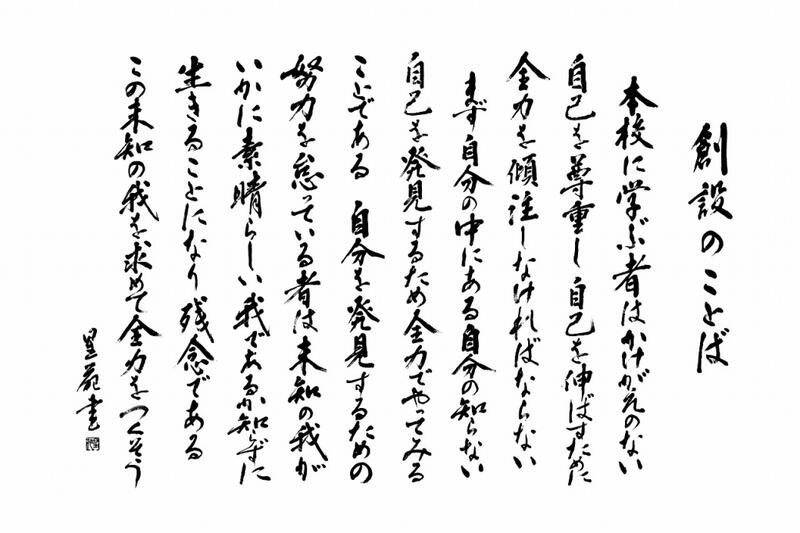 創設のことば
本校に学ぶ者はかけがえのない
自己を尊重し自己を伸ばすために
全力を傾注しなければならない
まず自分の中にある自分の知らない
自己を発見するため全力でやってみる
ことである　自分を発見するための
努力を怠っている者は未知の我が
いかに素晴らしい我であるか知らずに
生きることになり残念である
この未知の我を求めて全力をつくそう
書